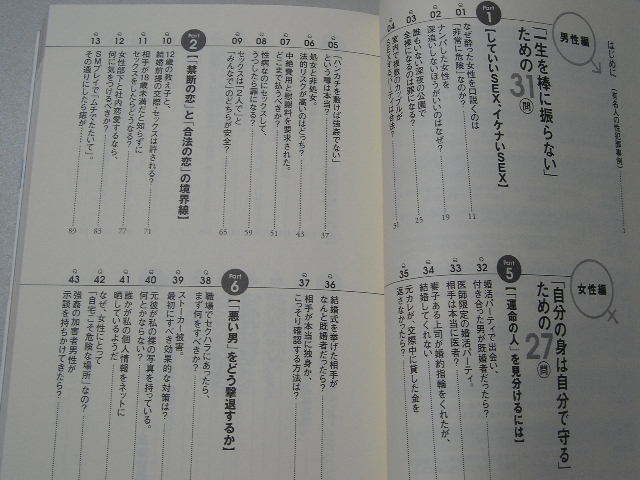 はじめに
(有名人の性犯罪事例)
3
男性編
「一生を棒に振らない」
ための31問
Part 1
【していいSEX、イケナイSEX】
Q 01
なぜ酔った女性を口説くのは
「非常に危険」なのか?
11
Q 02
ナンパした女性を
深追いしないほうがいいのはなぜ?
19
Q 03
誰もいない深夜の公園で
全裸になるのは犯罪になる?
25
Q 04
室内で複数のカップルが
31
Q 05
「ハンカチを敷けば強姦でない」
という噂は本当?
37
Q 06
処女と非処女。
法的リスクが高いのはどっち?
43
Q 07
中絶費用と慰謝料を要求された。
どこまで払うべきか?
51
Q 08
性病なのにセックスして、
うつしたら罪になる?
59
Q 09
セックスは「2人で」と
「みんなで」のどちらが安全?
65
Part 2
【「禁断の恋」と「合法の恋」の境界線】
Q 10
12歳の教え子と、
結婚前提の交際。セックスは許される?
71
Q 11
相手が18歳未満だと知らずに
セックスをしたらどうなる?
77
Q 12
女性部下と社内恋愛するなら、
何に気をつけるべきか?
83
Q 13
SMプレイで「ムチでたたいて」。
その通りにしたら痣が…
89
女性編
「自分の身は自分で守る」
ための27問
Part 5
【「運命の人」を見分けるには】
Q 32
婚活パーティで出会い、
付き合った男が既婚者だったら?
Q 33
医師限定の婚活パーティ。
相手は本当に医者?
Q 34
妻子ある上司が婚約指輪をくれたが、
結婚してくれない
Q 35
元カレが、交際中に貸した金を
返さなかったら?
Q 36
結婚式を挙げた相手が
なんと既婚者だったら?
Q 37
相手が本当に独身か、
こっそり確認する方法は?
Part 6
【「悪い男」をどう撃退するか】
Q 38
職場でセクハラにあったら、
まず何をすべきか?
Q 39
ストーカー被害。
最初にすべき効果的な対策は?
Q 40
元彼が私の裸の写真を持っている。
何とかならない?
Q 41
誰かが私の個人情報をネットに
晒しているようだ
Q 42
なぜ、女性にとって
「自宅」こそ危険な場所」なの?
Q 43
強姦の加害者男性が
示談を持ちかけてきたら?